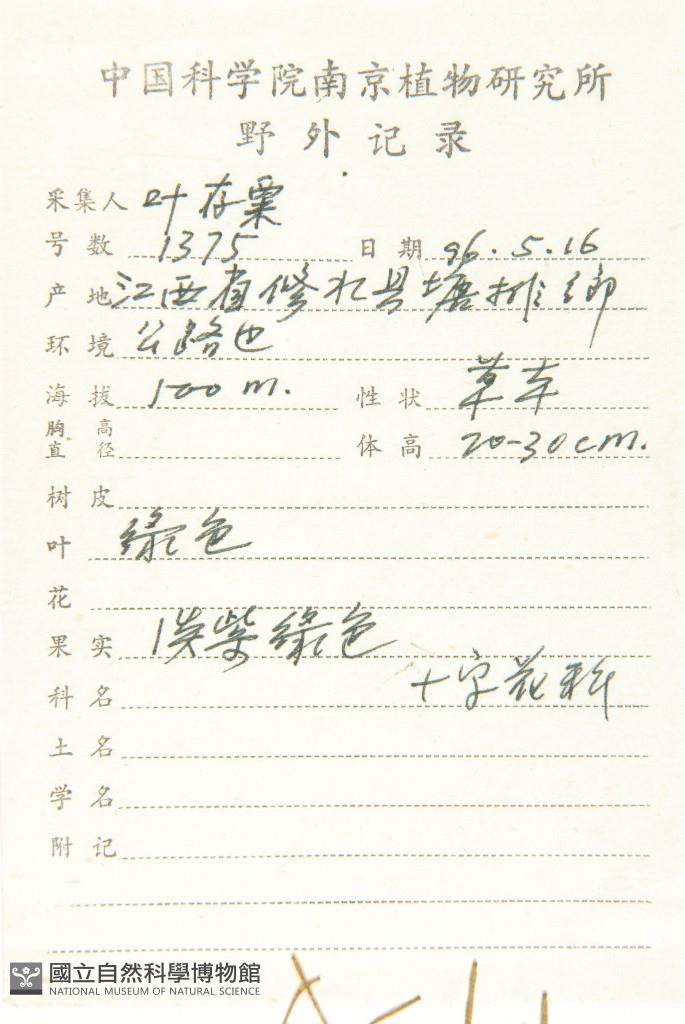 中国科学院南京植物研究所
野外记录
采集人 叶存粟
号数 1375 日期 96.5.16
产地 江西省修水县塘排乡
环境 公路边
海拔 100 m. 性状 草本
胸高直径 体高 20-30cm.
树皮
叶 绿色
花
果实 淡紫绿色
科名 十字花科
土名
学名
附记
國立自然科學博物館
NATIONAL MUSEUM OF NATURAL SCIENCE